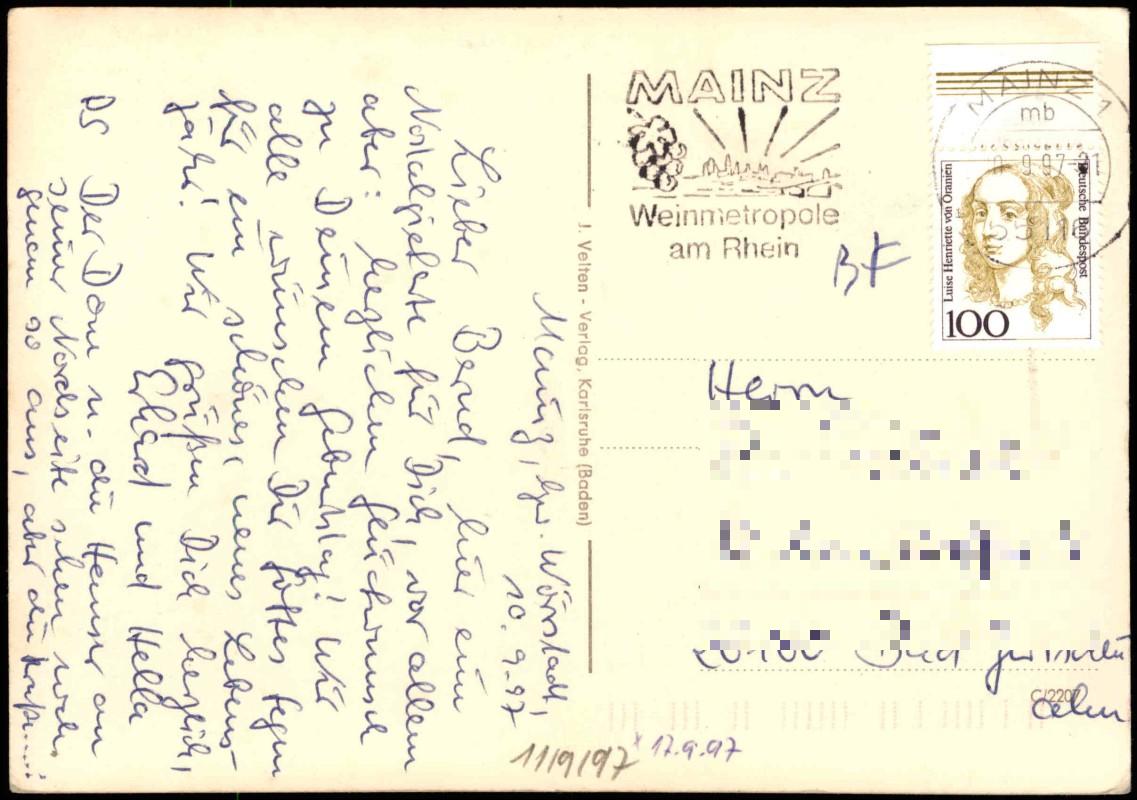 Mainz, bzw. Wörrstadt,
10.9.97
Lieber Bernd, hier eine
Nostalgiekarte für Dich, vor allem
aber: herzlichen Glückwunsch
zu Deinem Geburtstag! Wir
alle wünschen Dir Gottes Segen
für ein schönes, neues Lebens-
jahr! Wir grüßen Dich herzlich,
Erhard und Hella
PS Der Dom u. die Häuser an
seiner Nordseite sehen noch
genau so aus, aber die Straße....!
J. Velten - Verlag, Karlsruhe (Baden)
MAINZ
Weinmetropole
am Rhein
MAINZ 1
mb
9.97-21
Luise Henriette von Oranien
Deutsche Bundespost
100
BF
Herrn
Bad
C/2207
11/9/97
12.9.97